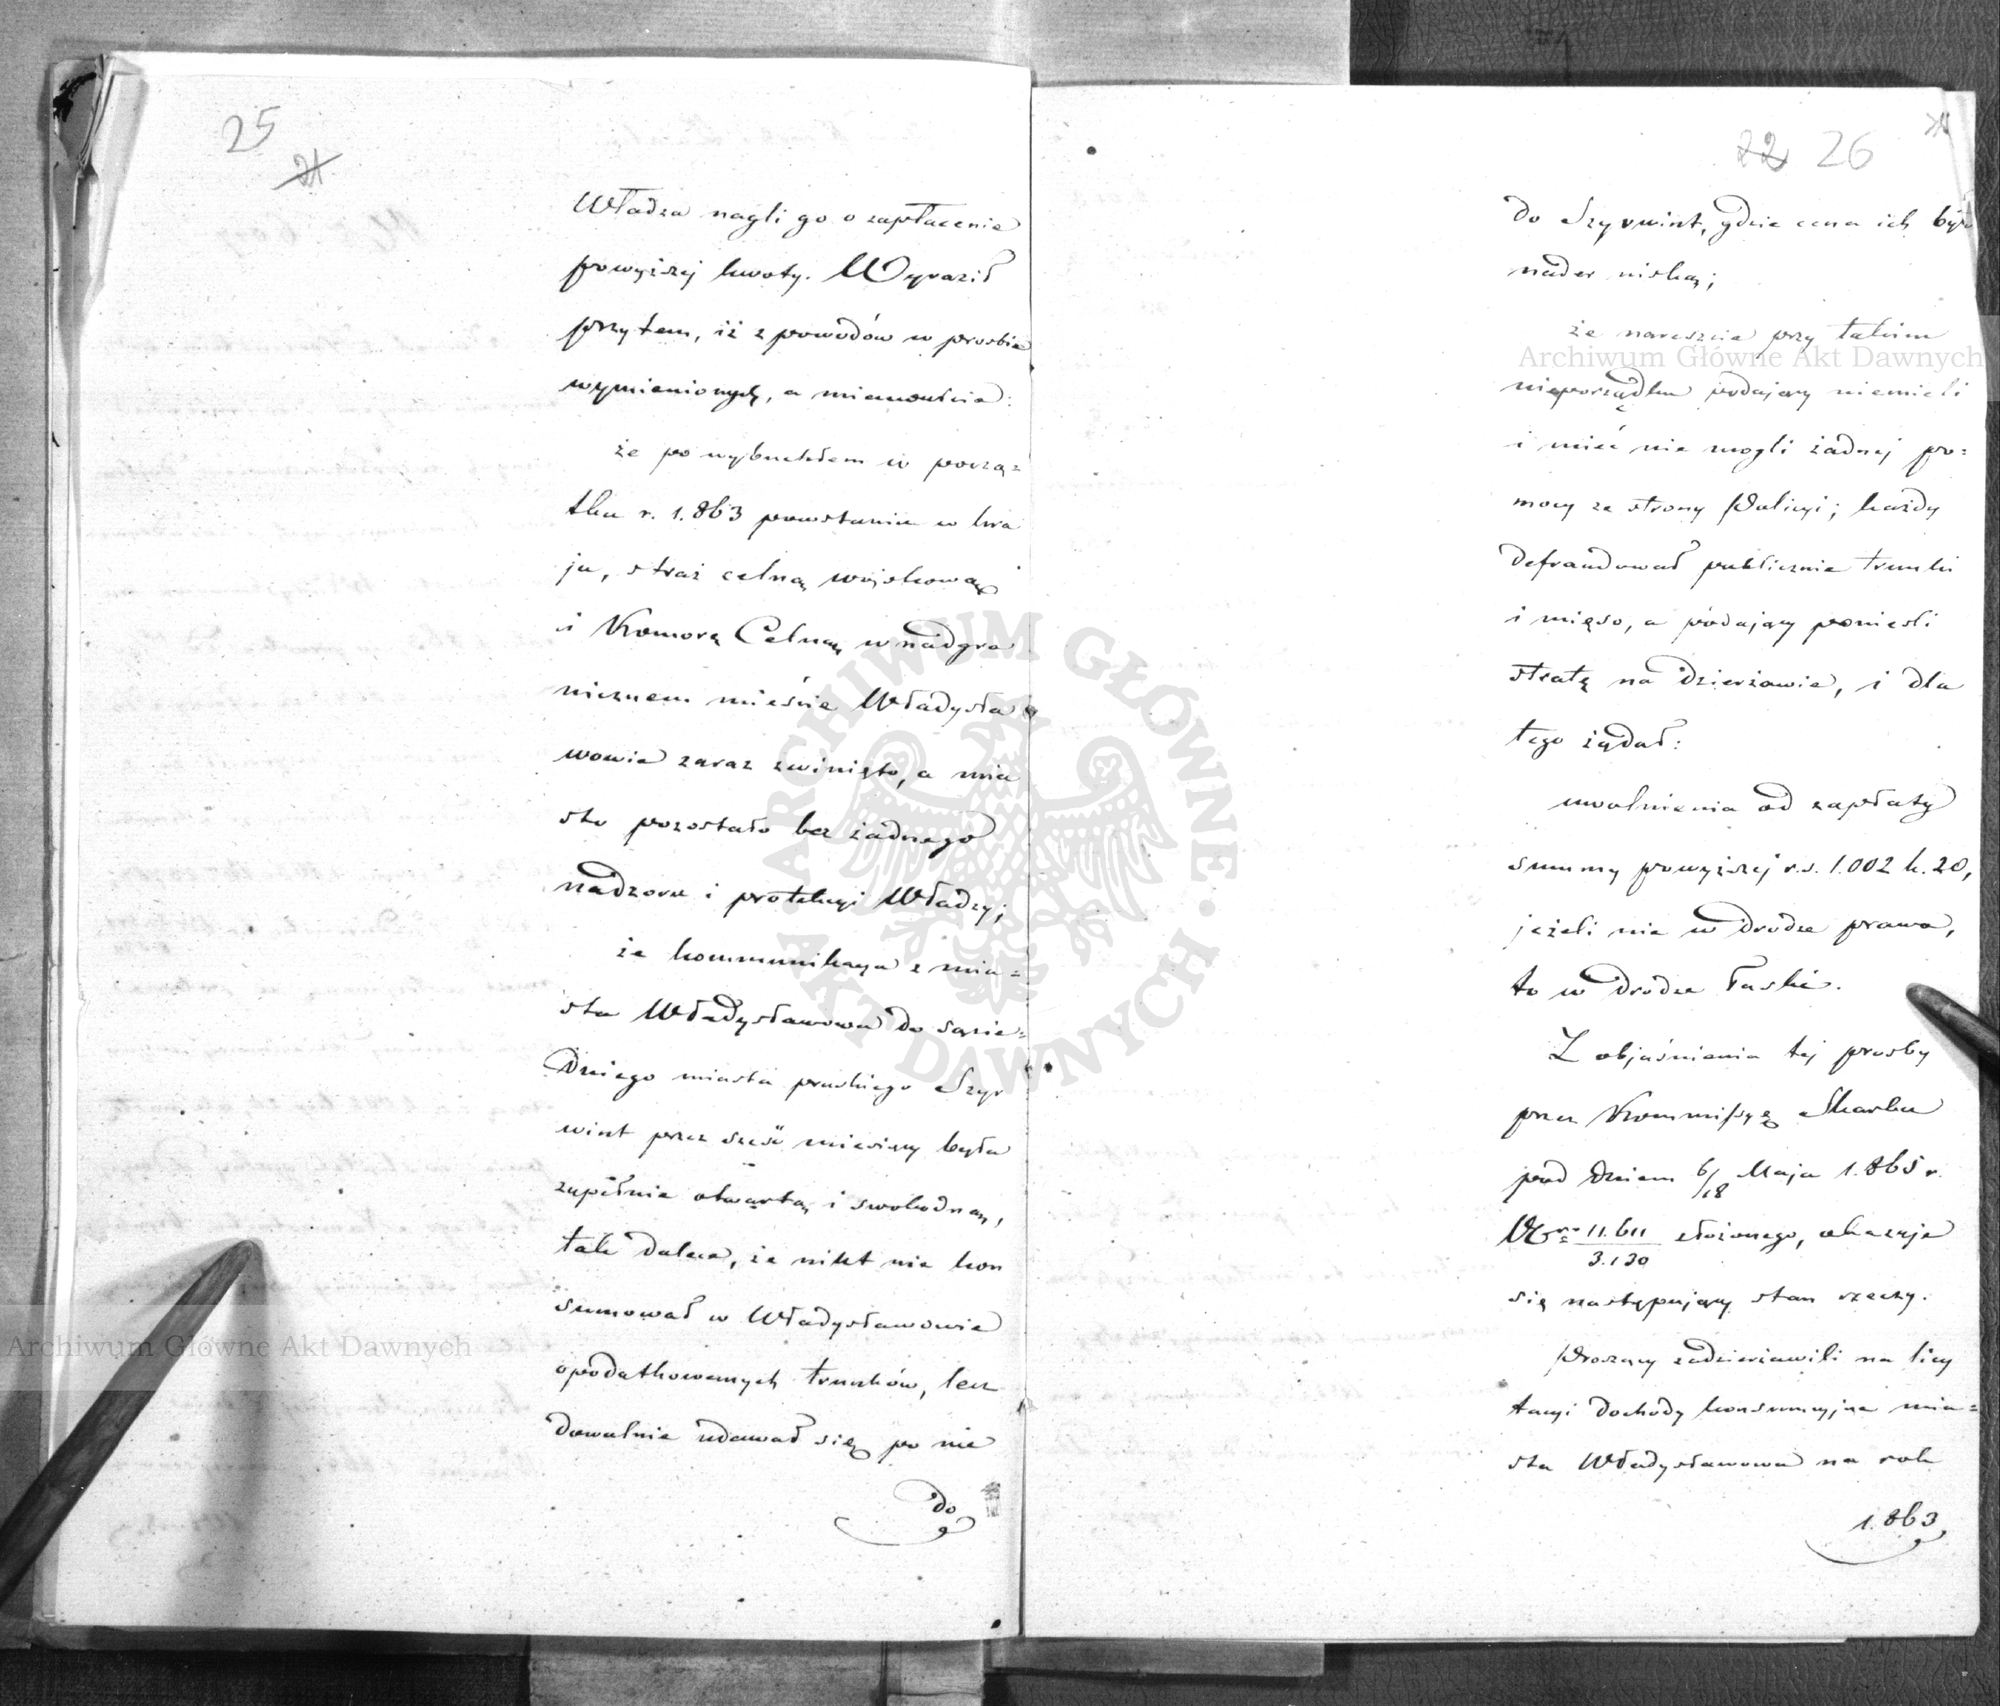 25
21
Władza nagli go o zapłacenie
powyższej kwoty. Wyraził
przytem, iż z powodów w prosbie
wymienionych, a mianowicie:
że po wybuchłem w począ=
tku r. 1.863 powstaniu w kra
ju, straż celną wojskową
i Komorę Celną w nadgra
nicznem mieście Władysła
wowie zaraz zwinięto, a mia
sto pozostało bez żadnego
nadzoru i protekcyi Władzy;
że kommunikacya z mia=
sta Władysławowa do sąsie=
dniego miasta pruskiego Szyr
wint przez sześć miesięcy była
zupełnie otwartą i swobodną,
tak dalece, że nikt nie kon
sumował w Władysławowie
opodatkowanych trunków, lecz
dowolnie udawał się po nie
do
22 26
do Szyrwint, gdzie cena ich była
nader niską;
że nareszcie przy takim
nieporządku podający niemieli
i mieć nie mogli żadnej po=
mocy ze strony Policyi; każdy
defraudował publicznie trunki
i mięso, a podający ponieśli
stratę na dzierżawie, i dla
tego żądał:
uwolnienia od zapłaty
summy powyższej r.s. 1.002 k. 20,
jeżeli nie w drodze prawa,
to w drodze łaski.
Z objaśnienia tej prosby
przez Kommissyę Skarbu
pod dniem 6/18 Maja 1.865 r.
Nro 11.611/3.130 złożonego, okazuje
się następujący stan rzeczy.
Proszący zadzierżawili na licy
tacyi dochody konsumcyjne mia=
sta Władysławowa na rok
1.863
Archiwum Główne Akt Dawnych
Archiwum Główne Akt Dawnych
ARCHIWUM GŁÓWNE AKT DAWNYCH